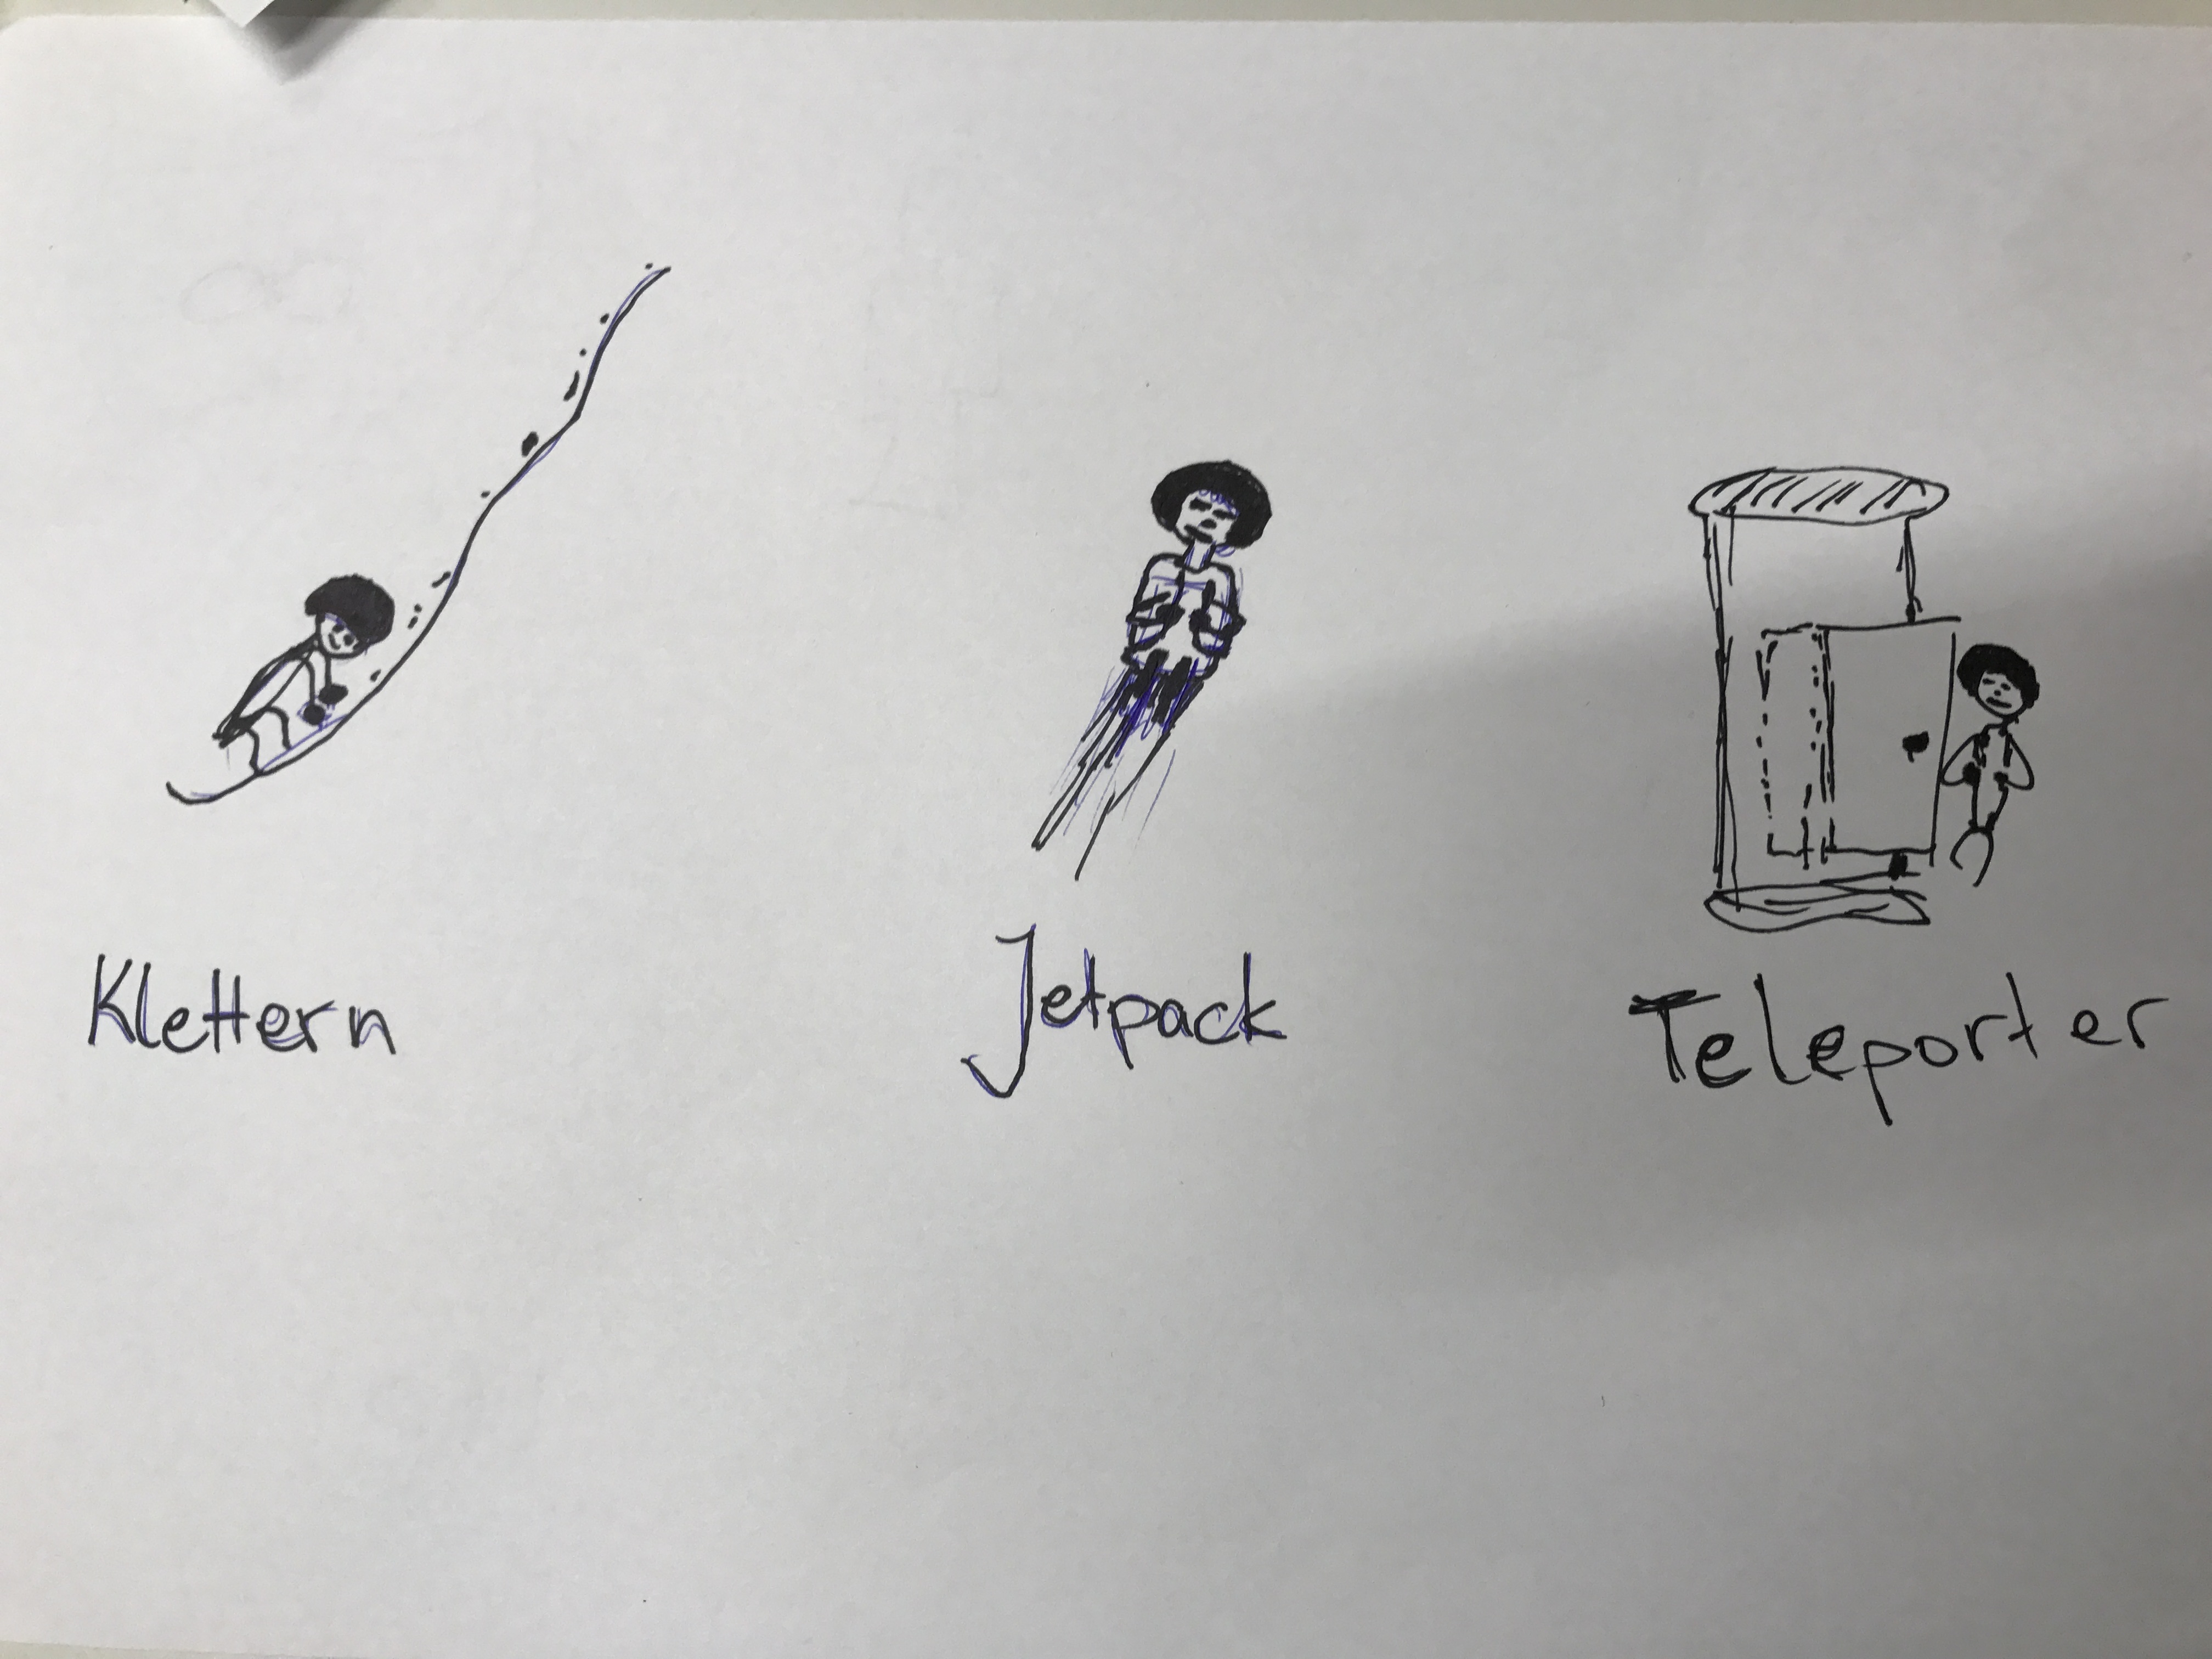 Klettern
Jetpack
Teleporter